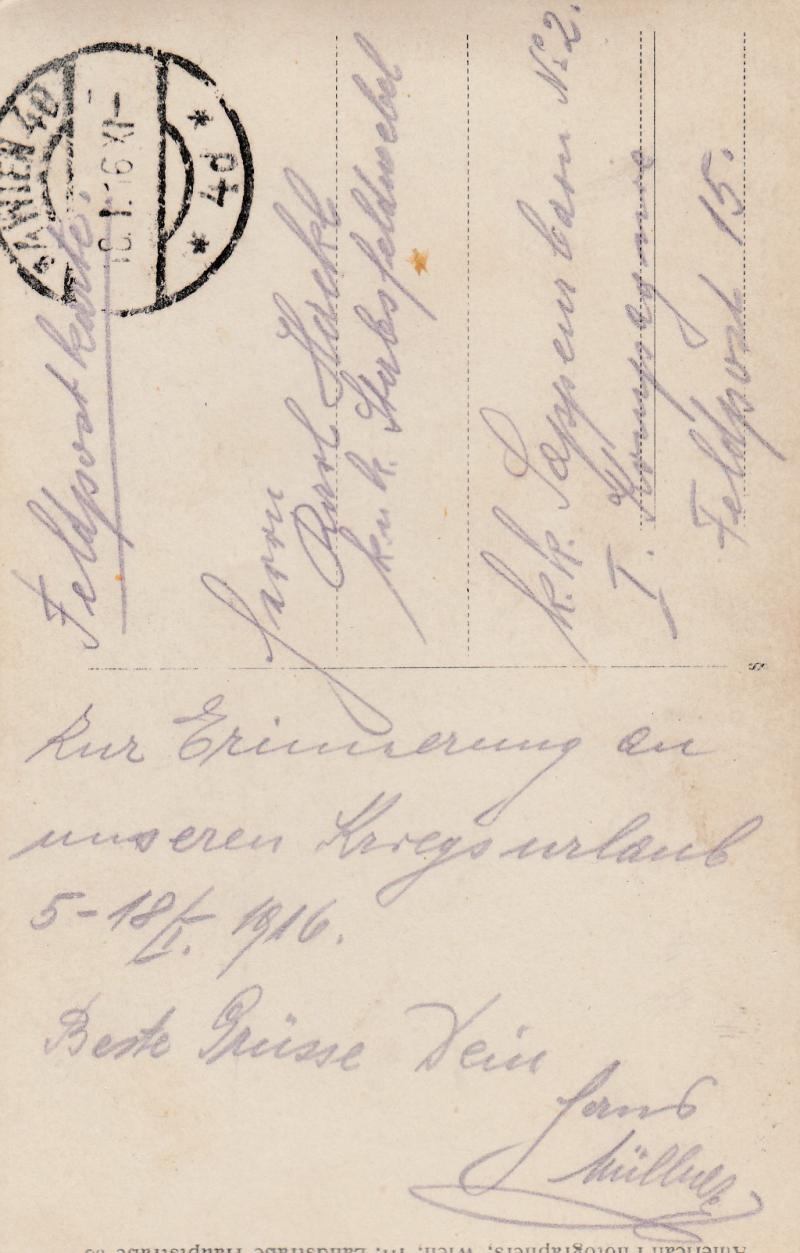 Feldpostkarte.
4 WIEN 4d
18.I.16 XI-
* 4d *
Herrn
Karl
k.u.k. Stabsfeldwebel
k.k. Sappeurbaon № 2.
I. Kompagnie
Feldpost 15.
Zur Erinnerung an
unseren Kriegsurlaub
5-18/I. 1916.
Beste Grüsse Dein
Hans
Müllner
American Photographers, Wien, III. Landstraße Hauptstraße